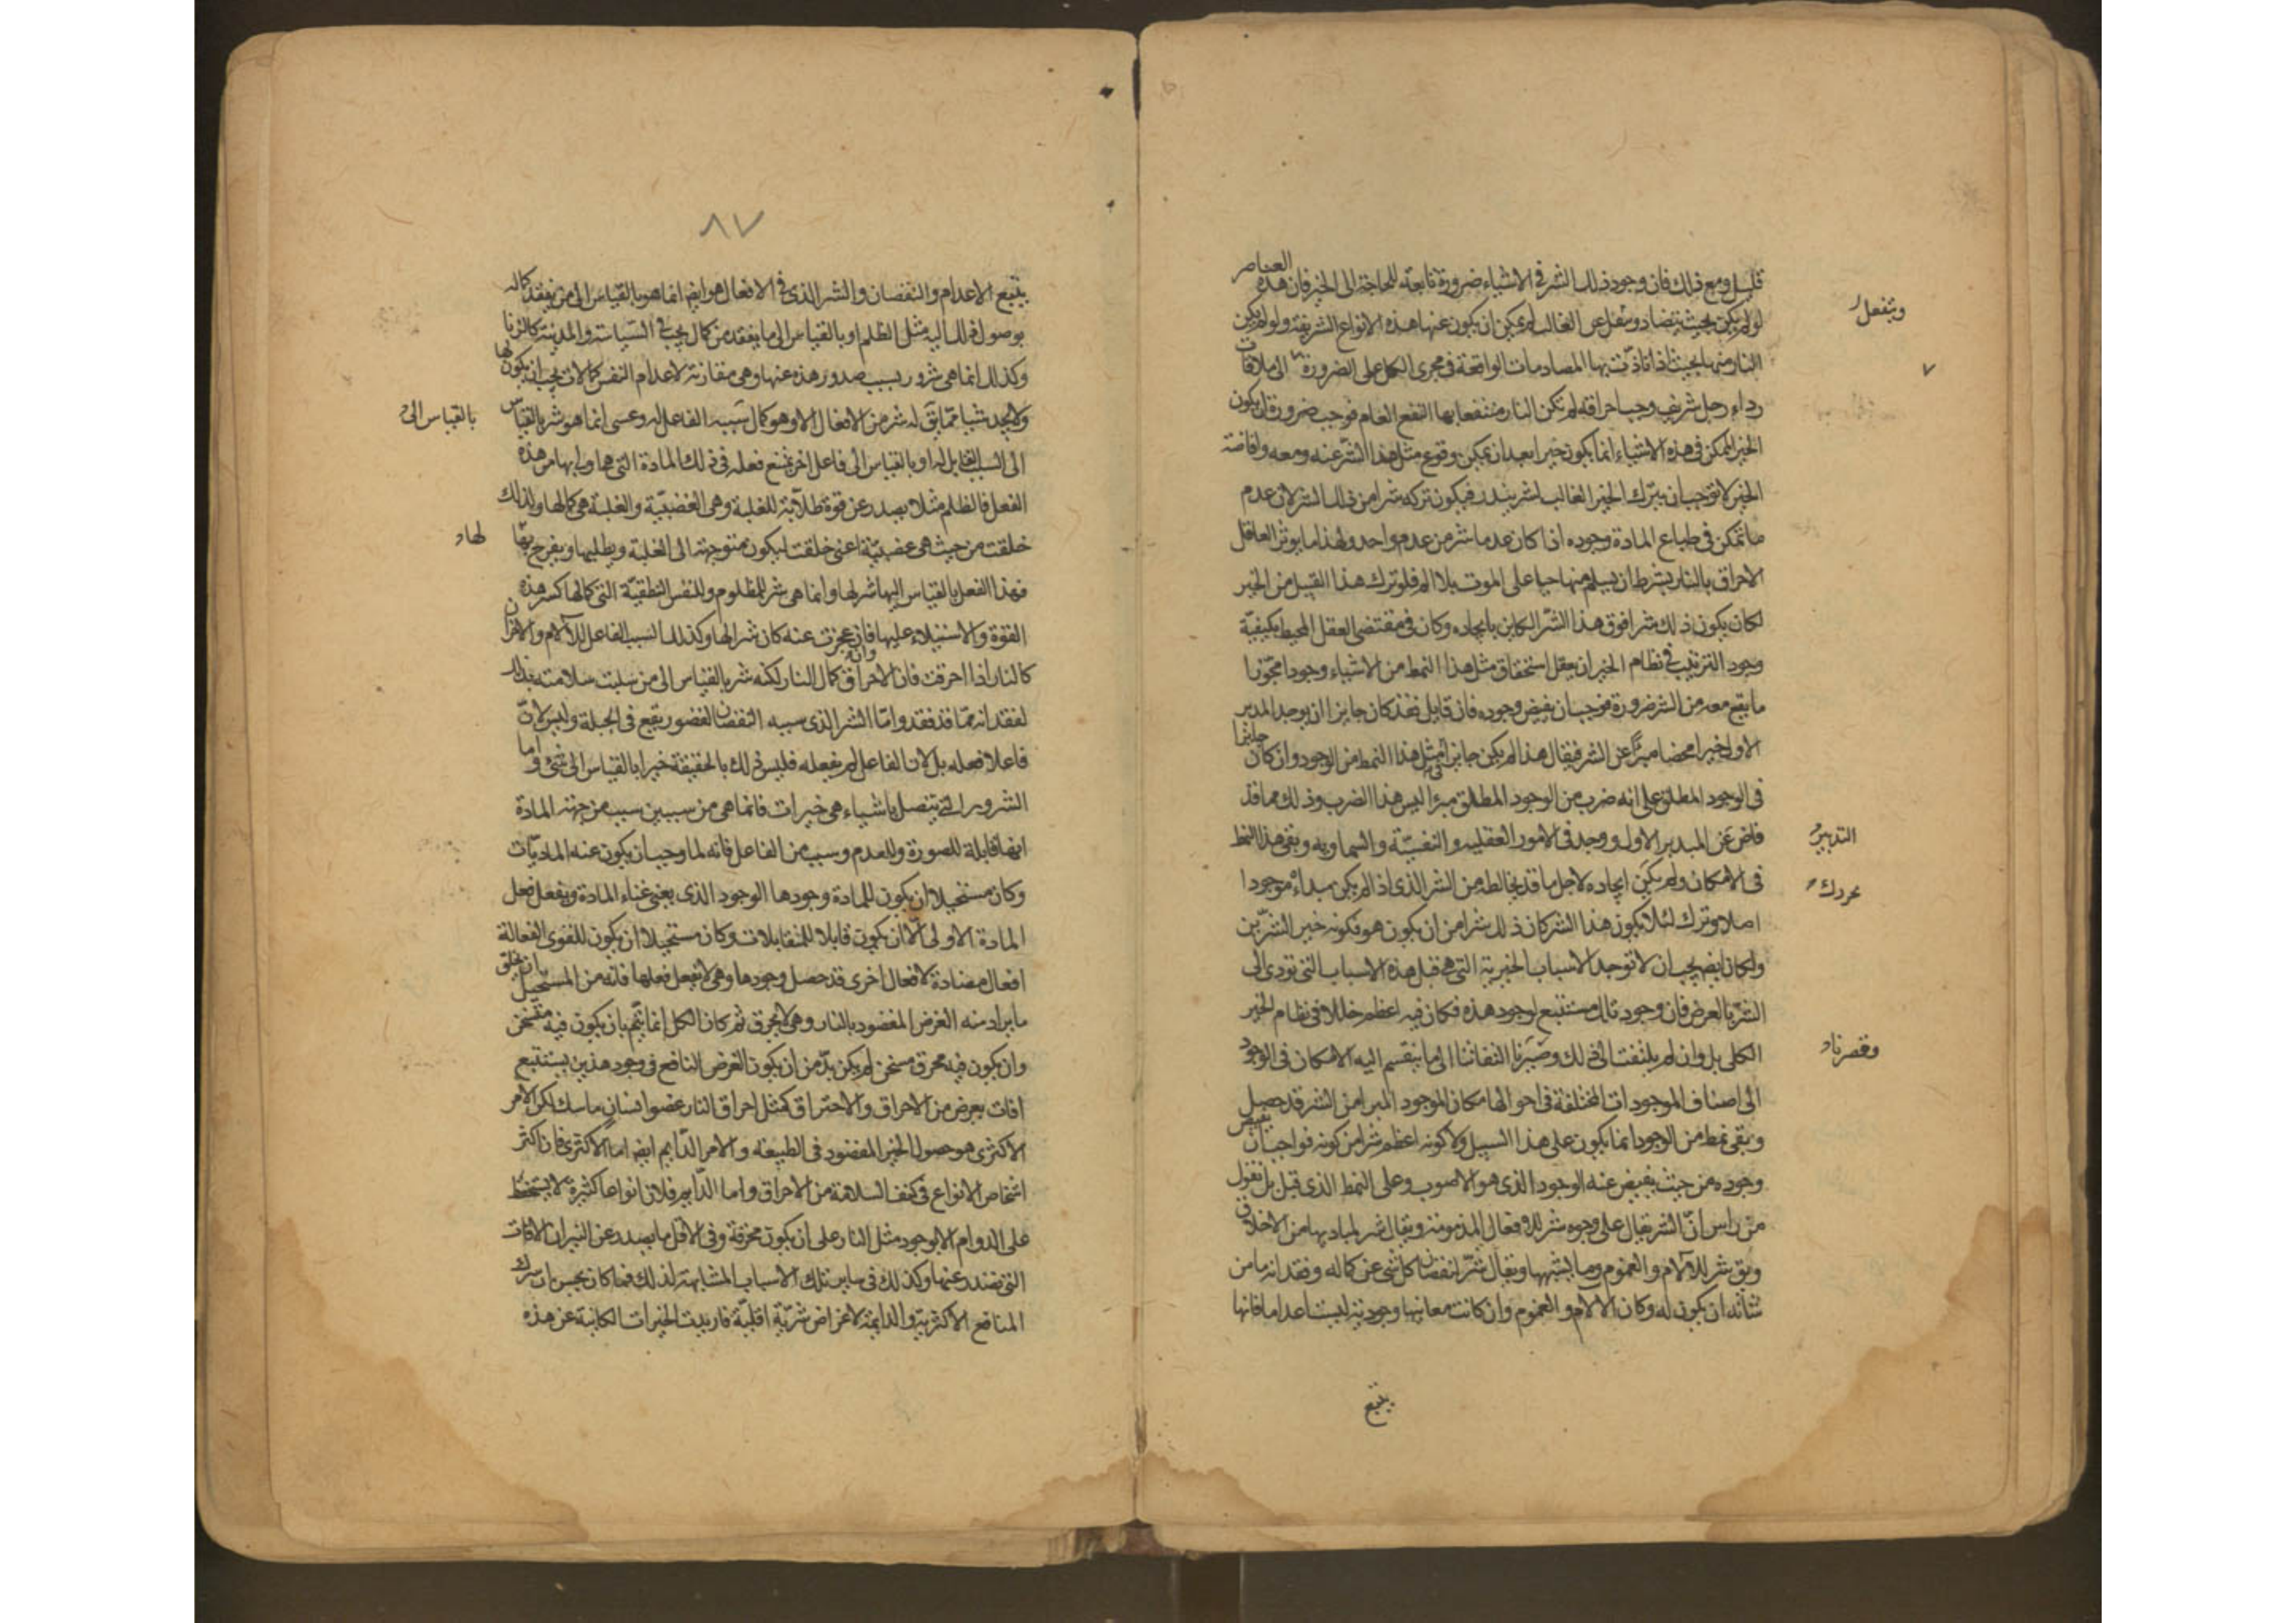 قليل ومع ذلك فان وجود ذلك الشر فى الاشياء ضرورة تابعة للحاجة الى الخير فان هذه العناصر
لو لم يكن بحيث يتضاد وينفعل عن الغالب لم يمكن ان يكون عنها هذه الانواع الشريفة ولو لم يكن
النار منها بحيث اذا تادّت بها المصادمات الواقعة فى مجرى الكل على الضرورة الى ملاقات
رداء رجل شريف وجب احراقه لم تكن النار منتفعا بها النفع العام فوجب ضرورة ان يكون
الخير الممكن فى هذه الاشياء انما يكون خيرا بعد ان يمكن وقوع مثل هذا الشر عنه ومعه وافاضة
الخير لا توجب ان يترك الخير الغالب لشر يندر فيكون تركه شرا من ذلك الشر لان عدم
ما تمكن فى طباع المادة وجوده اذا كان عدما شر من عدم واحد ولهذا ما يوثر العاقل
الاحراق بالنار بشرط ان يسلم منها حيا على الموت بلا الم فلو ترك هذا القبيل من الخير
لكان يكون ذلك شرا فوق هذا الشر الكاين بايجاده وكان فى مقتضى العقل المحيط بكيفية
وجود الترتيب فى نظام الخير ان يعقل استحقاق مثل هذا النمط من الاشياء وجودا مجوّزا
ما يقع معه من الشر ضرورة فوجب ان يفيض وجوده فان قايل فقد كان جايزا ان يوجد المدبر
الاول خيرا محضا مبرّا عن الشر فيقال هذا لم يكن جايزا فى مثل هذا النمط من الوجود وان كان جايزا
فى الوجود المطلق على انه ضرب من الوجود المطلق مبرا ليس هذا الضرب وذلك مما قد
فاض عن المبدير الاول ووجد فى الامور العقلية والنفسيّة والسماوية وبقى هذا النمط
فى الامكان ولم يكن ايجاده لاجل ما قد يخالطه من الشر الذى اذا لم يكن مبداءه موجودا
اصلا وترك لئلا يكون هذا الشر كان ذلك شرا من ان يكون هو فكونه خير الشرّين
ولكان ايضا يجب ان لا توجد الاسباب الخيرية التى هى قبل هذه الاسباب التى تودى الى
الشر بالعرض فان وجود تلك مستتبع لوجود هذه فكان فيه اعظم خللا فى نظام الخير
الكلى بل وان لم يلتفت الى ذلك وصيّرنا التفاتنا الى ما ينقسم اليه الامكان فى الوجود
الى اصناف الموجودات المختلفة فى احوالها مكان الموجود المبرا من الشر قد حصل
وبقى نمط من الوجود انما يكون على هذا السبيل ولا كونه اعظم شرا من كونه فواجب ان يفيض
وجوده من حيث يفيض عنه الوجود الذى هو الاصوب وعلى النمط الذى قيل بل نقول
من راس انّ الشر يقال على وجوه شر للافعال المذمومة ويقال شر لمباديها من الاخلاق
ويق شر للآلام والغموم وما يشبهها ويقال شرّ لنقصان كل شئ عن كماله وفقدانه ما من
شانه ان يكون له وكان الالام والغموم وان كانت معانيها وجودية ليست اعداما فانها
يتبع
وينفعل
٧
التدبير
وقصرناه
٨٧
يتبع الاعدام والنقصان والشر الذى فى الافعال هو ايضا انما هو بالقياس الى من يفقد كماله
بوصول ذلك اليه مثل الظلم او بالقياس الى ما يفقد من كمال يجب فى السياسة والمدينة كالزنا
وكذلك انما هى شرور بسبب صدور هذه عنها وهى مقارنة لاعدام النفس كمالات يجب ان يكون لها
ولا يجد شيا مما يق له شر من الافعال الا وهو كمال سببه الفاعل له وعسى انما هو شر بالقياس
الى السبب القابل له او بالقياس الى فاعل اخر يمنع فعله فى ذلك المادة التى هو اولى بها من هذه
الفعل فالظلم مثلا يصدر عن قوة طلّابة للغلبة وهى الغضبيّة والغلبة هى كمالها ولذلك
خلقت من حيث هى غضبيّة اعنى خلقت ليكون متوجهة الى الغلبة ويطلبها ويفرح بها
فهذا الفعل بالقياس اليها شر لها وانما هى شر للمظلوم وللنفس النطقيّة التى كمالها كسر هذه
القوة والاستيلاء عليها فان عجزت عنه كان شرا لها وكذلك السبب الفاعل للآلام والاحزان
كالنار اذا احرقت فان الاحراق كمال النار لكنه شر بالقياس الى من سلبت سلامته بذلك
لفقدانه ما قد فقد وامّا الشر الذى سببه النقصان القصور يقع فى الجبلة وليس لانّ
فاعلا فعله بل لان الفاعل لم يفعله فليس ذلك بالحقيقة خيرا بالقياس الى شئ واما
الشرور التى يتصل باشياء هى خيرات فانما هى من سببين سبب من جهة المادة
انها قابلة للصورة وللعدم وسبب من الفاعل فانه لما وجب ان يكون عنه الماديّات
وكان مستحيلا ان يكون للمادة وجودها الوجود الذى يعنى غناء المادة ويفعل فعل
المادة الاولى الّا ان يكون قابلا للمتقابلات وكان مستحيلا ان يكون للقوى الفعالة
افعال مضادة لافعال اخرى قد حصل وجودها وهى لا تفعل فعلها فانه من المستحيل ان يخلق
ما يراد منه الغرض المقصود بالنار وهى لا يحرق ثم كان الكل انما يتم بان يكون فيه متسخن
وان يكون فيه محرق مسخن لم يكن بدّ من ان يكون الغرض النافع فى وجود هذين يستتبع
افات يعرض من الاحراق والاحتراق كمثل احراق النار عضو انسان ناسك لكن الامر
الاكثرى هو حصول الخير المقصود فى الطبيعة والامر الدّايم ايضا اما الاكثرى فان اكثر
اشخاص الانواع فى كنف السلامة من الاحراق واما الدّايم فلان انواعا كثيرة لا يستحفظ
على الدوام الا بوجود مثل النار على ان يكون محرقة وفى الاقل ما يصدر عن النيران الافات
التى تصدر عنها وكذلك فى ساير تلك الاسباب المشابهة لذلك فما كان يحسن ان يترك
المنافع الاكثرية والدايمة لاغراض شريّة اقليّة فاريدت الخيرات الكاينة عن هذه
بالقياس الى
لها